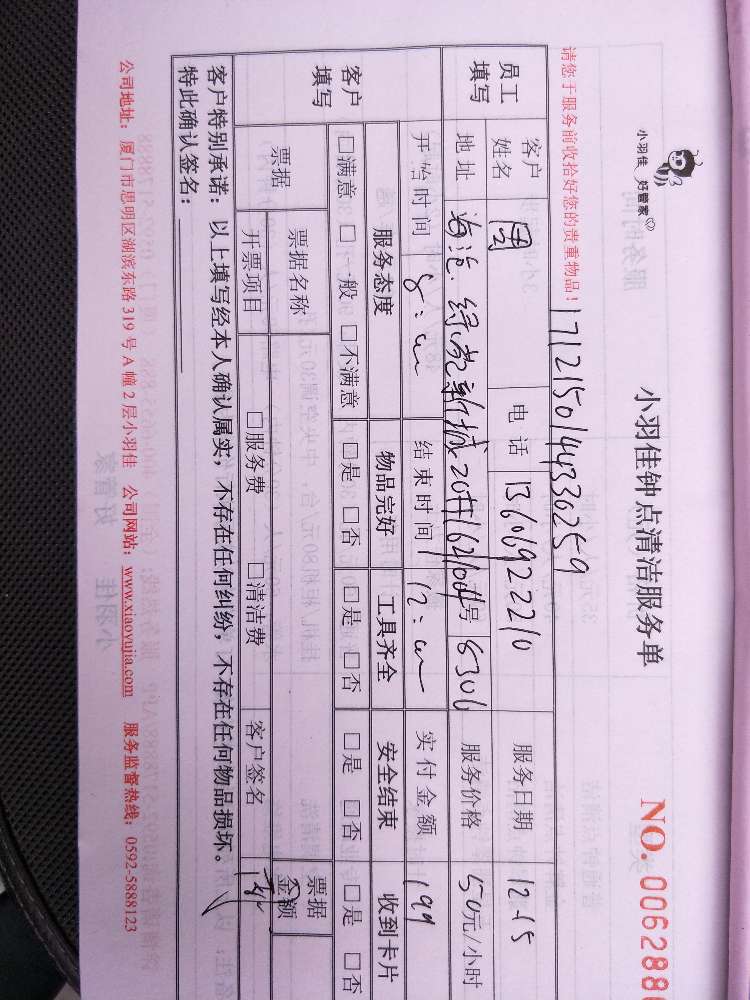 小羽佳 好管家
小羽佳钟点清洁服务单
NO. 0062888
1712150144330259
请您于服务前收拾好您的贵重物品!
员工填写
客户姓名 周 电话 13606922210 服务日期 12-15
地址 海沧 绿苑新城20 号 服务价格 50元/小时
开始时间 8: 结束时间 12: 实付金额 199
客户填写
服务态度 物品完好 工具齐全 安全结束 收到卡片
□满意 □一般 □不满意 □是 □否 □是 □否 □是 □否 □是 □否
票据 票据名称 票据金额
开票项目 □服务费 □清洁费 客户签名
客户特别承诺: 以上填写经本人确认属实, 不存在任何纠纷, 不存在任何物品损坏。
特此确认签名:
公司地址: 厦门市思明区湖滨东路 319 号 A 幢 2 层小羽佳 公司网站: www.xiaoyujia.com 服务监督热线: 0592-5888123